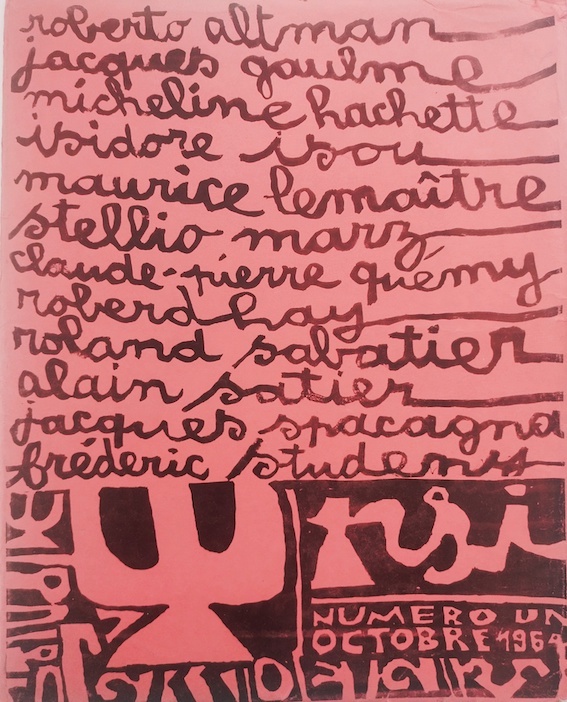 roberto altman
jacques gaulme
micheline hachette
isidore isou
maurice lemaître
stellio marz
claude-pierre quémy
roberd hay
roland sabatier
alain satier
jacques spacagna
fréderic studeny
Ψ
rsi
NUMERO UN
OCTOBRE 1964